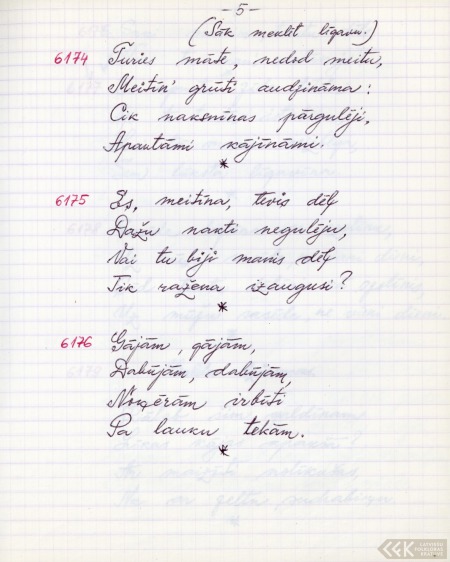 - 5 -
(Sāk meklēt līgavu.)
6174 Turies māte, nedod meitu,
Meitiņ' grūti audzināma:
Cik naksniņas pārgulēji,
Apautāmi kājiņāmi.
*
6175 Es, meitiņa, tevis dēļ
Dažu nakti negulēju,
Vai tu biji manis dēļ
Tik ražena izaugusi?
*
6176 Gājām, gājām,
Dabūjām, dabūjām,
Noķērām irbīti
Pa lauku tekām.
*
LATVIEŠU
FOLKLORAS
KRĀTUVE